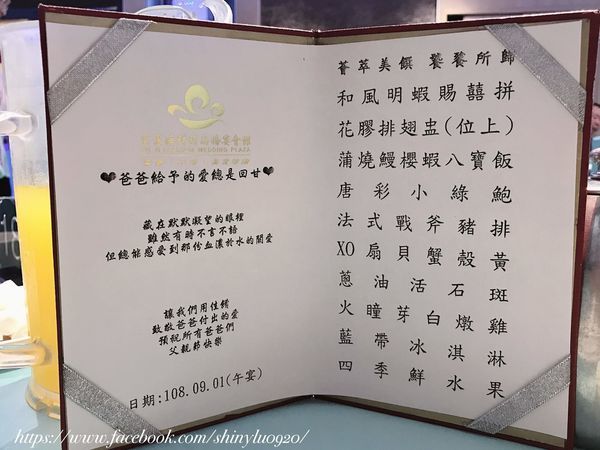 WEDDING PLAZA
❤爸爸給予的愛總是回甘❤
藏在默默凝望的眼裡
雖然有時不言不語
但總能感受到那份血濃於水的關愛
讓我們用佳餚
致敬爸爸付出的愛
預祝所有爸爸們
父親節快樂
日期:108.09.01(午宴)
薈萃美饌 饕餮所歸
和風明蝦賜囍拼
花膠排翅盅(位上)
蒲燒鰻櫻蝦八寶飯
唐彩小綠鮑
法式戰斧豬排
XO扇貝蟹殼黃
蔥油活石斑
火瞳芽白燉雞
藍帶冰淇淋
四季鮮水果
https://www.facebook.com/shinyluo920/